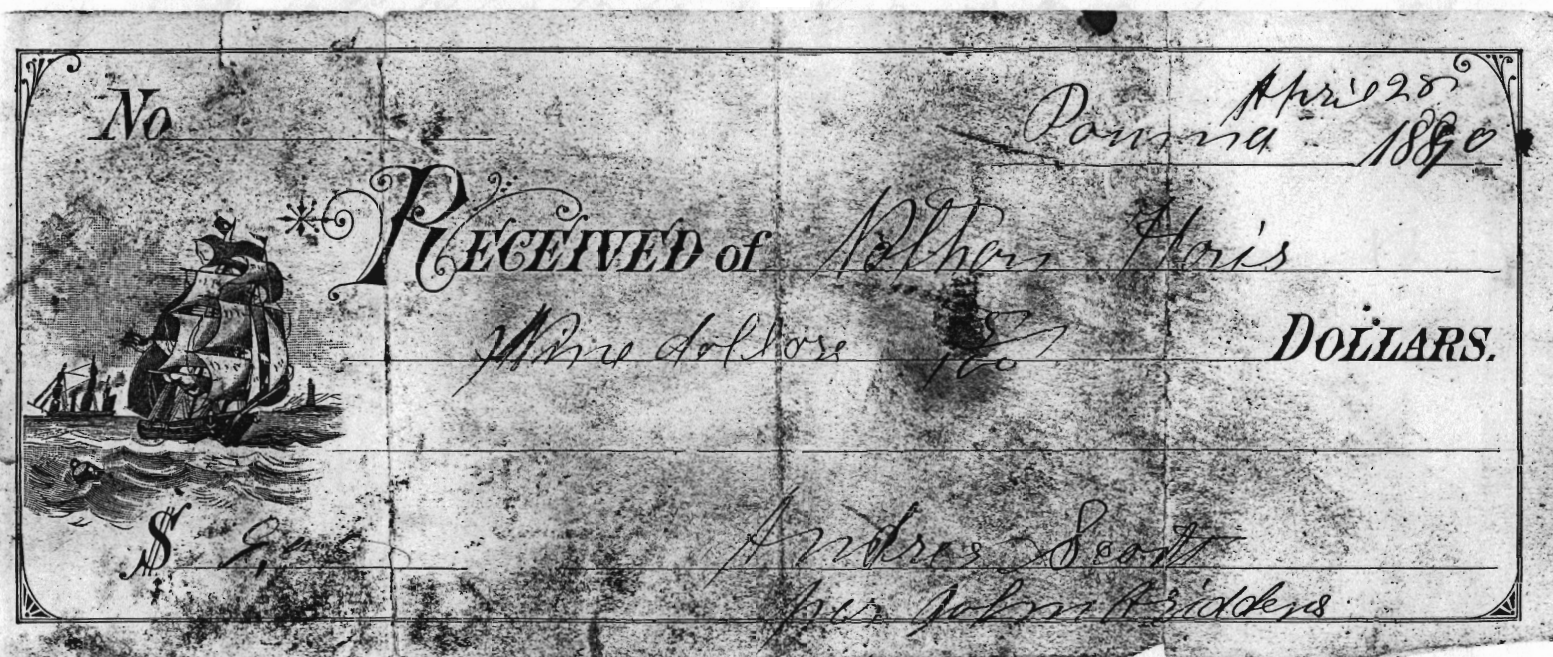 No
April 28
1880
RECEIVED of Nathan Horis
Nine dollars DOLLARS.
$ 9
Andres Scott
per John Griddens